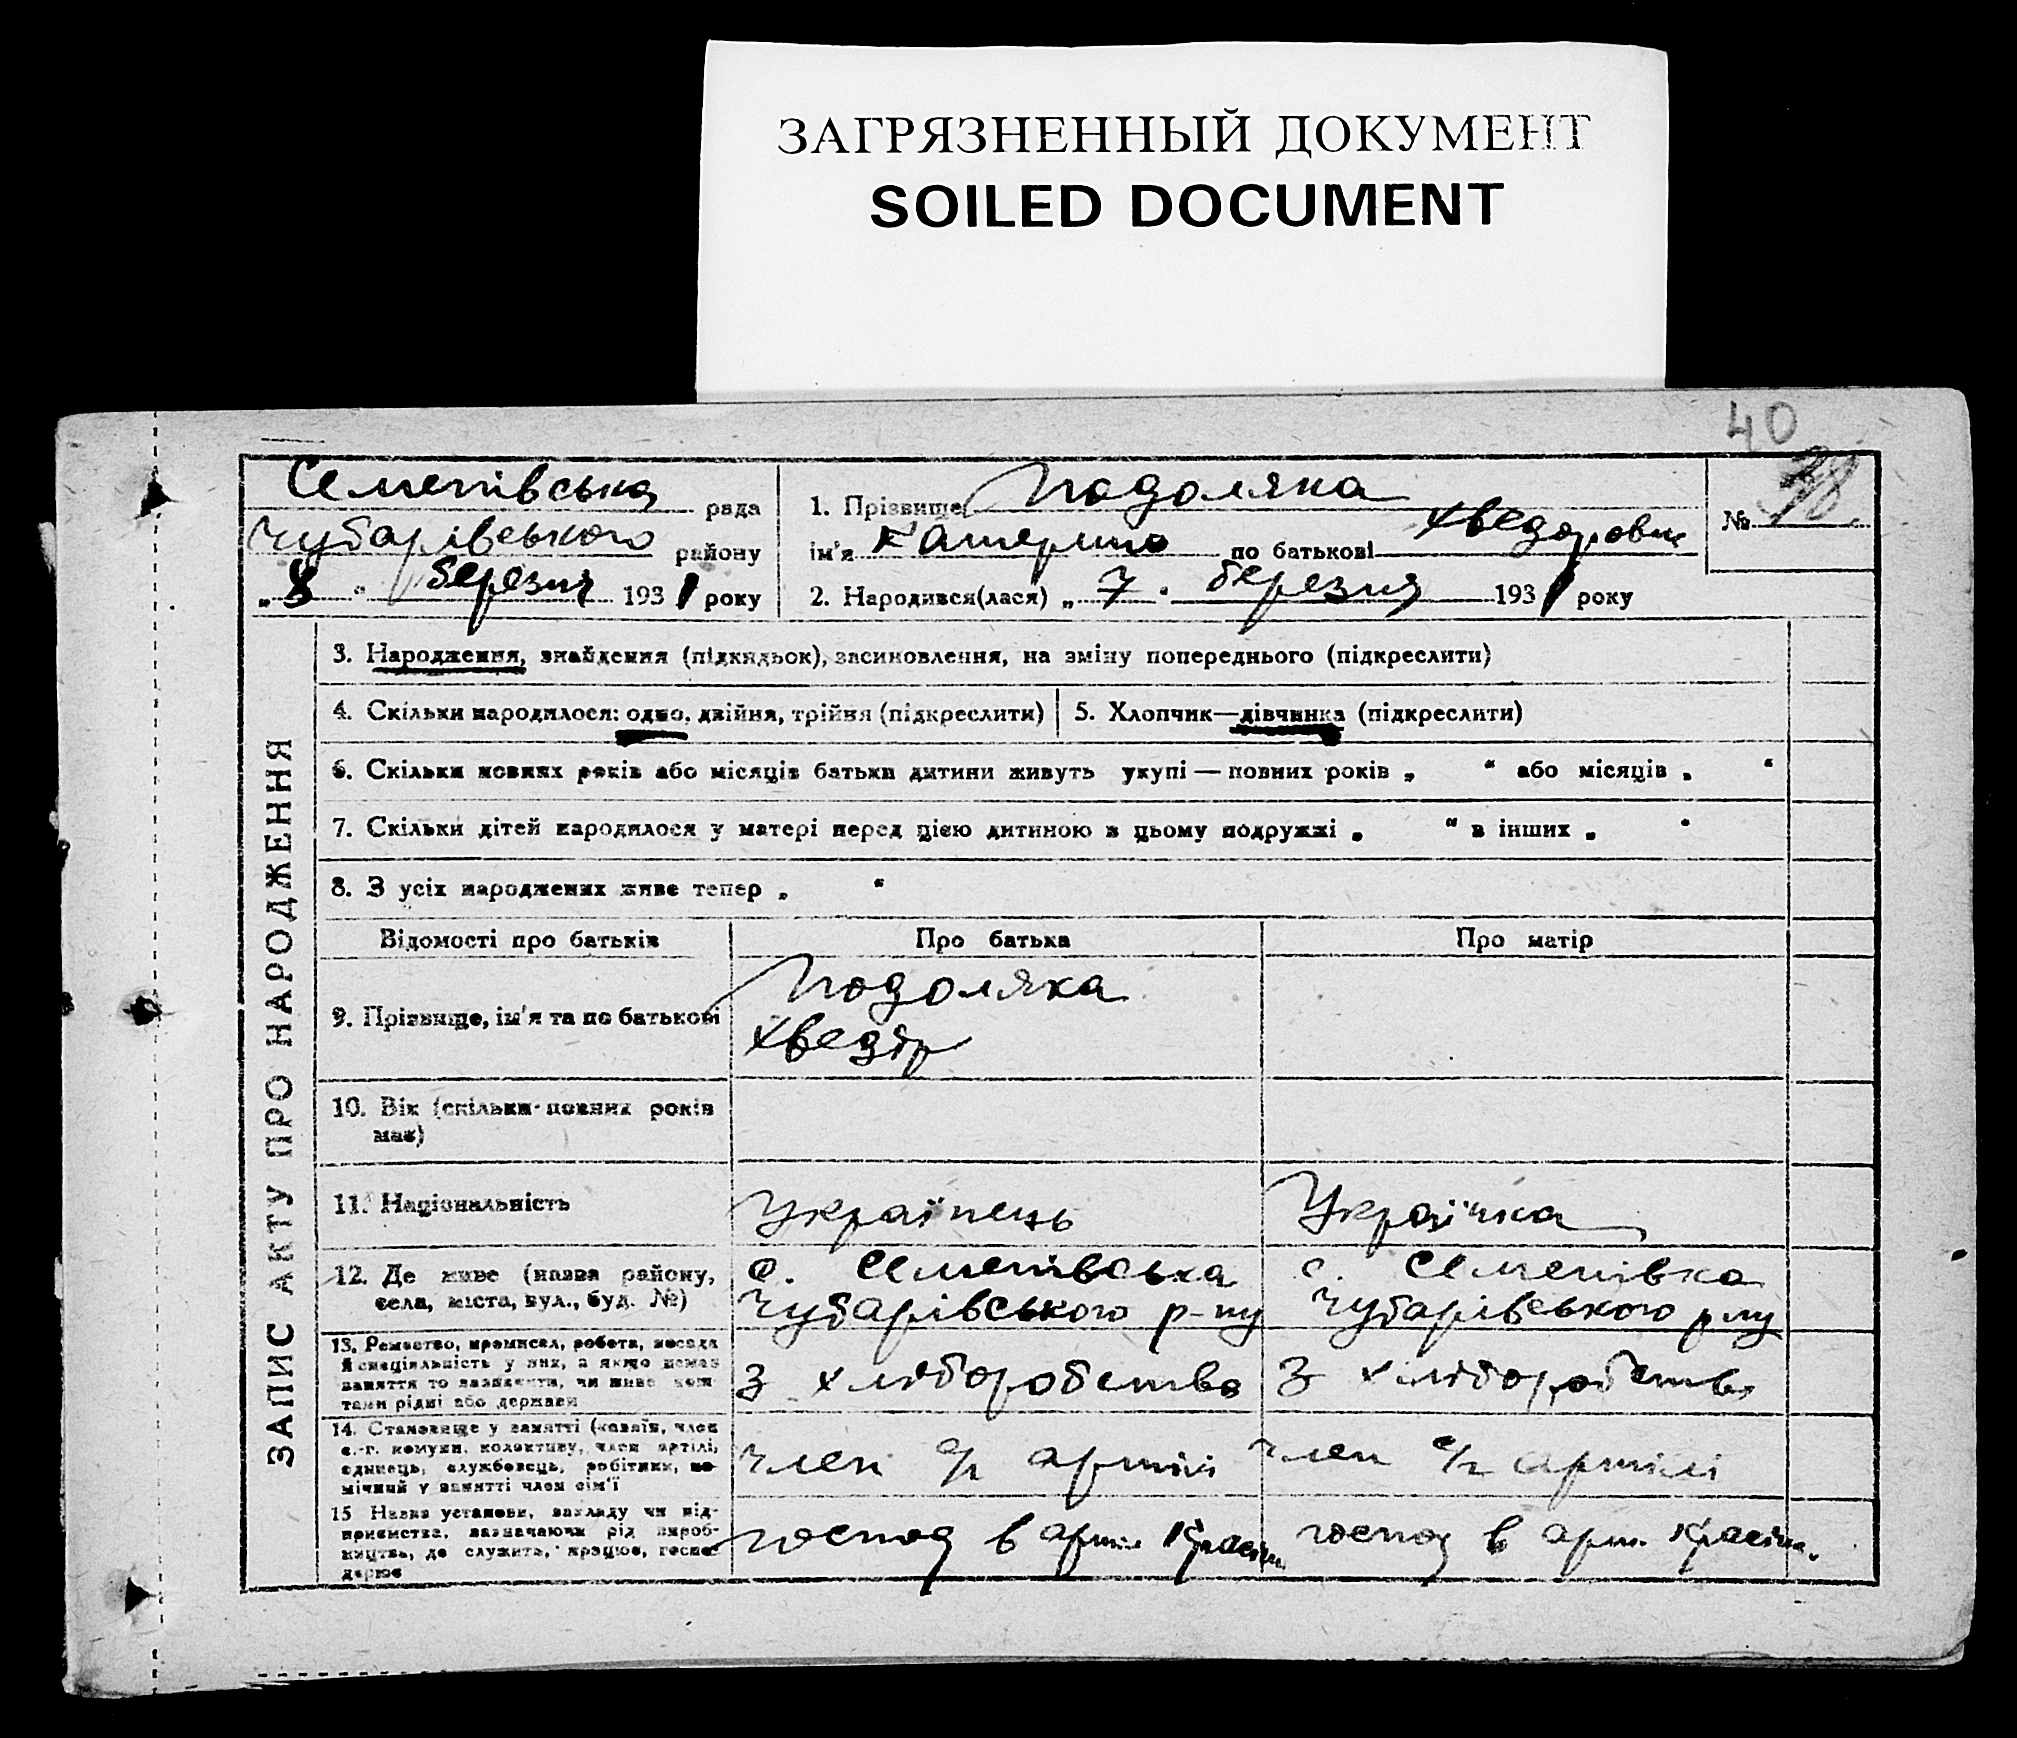 ЗАГРЯЗНЕННЫЙ ДОКУМЕНТ
SOILED DOCUMENT
40
Семенівська рада
Чубарівського району
„8“ березня 1931 року
1. Прізвище Подоляка
ім'я Катерина по батькові Хведоровна
2. Народився(лася) „7“ березня 1931 року
№ 38
ЗАПИС АКТУ ПРО НАРОДЖЕННЯ
3. Народження, знайдення (підкидьок), засиновлення, на зміну попереднього (підкреслити)
4. Скільки народилося: одно, двійня, трійня (підкреслити)
5. Хлопчик—дівчинка (підкреслити)
6. Скільки повних років або місяців батьки дитини живуть укупі — повних років „ “ або місяців „ “
7. Скільки дітей народилося у матері перед цією дитиною в цьому подружжі „ “ в інших „ “
8. З усіх народжених живе тепер „ “
Відомості про батьків
Про батька
Про матір
9. Прізвище, ім'я та по батькові
Подоляка
Хведір
10. Вік (скільки повних років
має)
11. Національність
Українець
Українка
12. Де живе (назва району,
села, міста, вул., буд. №)
с. Семенівська
Чубарівського р-ну
с. Семенівка
Чубарівського р-ну
13. Ремество, промисел, робота, посада
й спеціяльність у них, а якщо немає
заняття то зазначити, чи живе кош-
тами рідні або держави
З хліборобства
З хліборобства
14. Становище у занятті (хазяїн, член
с.-г. комуни, колективу, член артілі,
єдинець, службовець, робітник, по-
мічний у занятті член сім'ї
член с/г артілі
член с/г артілі
15 Назва установи, закладу чи під-
приємства, зазначаючи рід вироб-
ництва, де служить, працює, госпо-
дарює
господ в арт.
господ в арт.